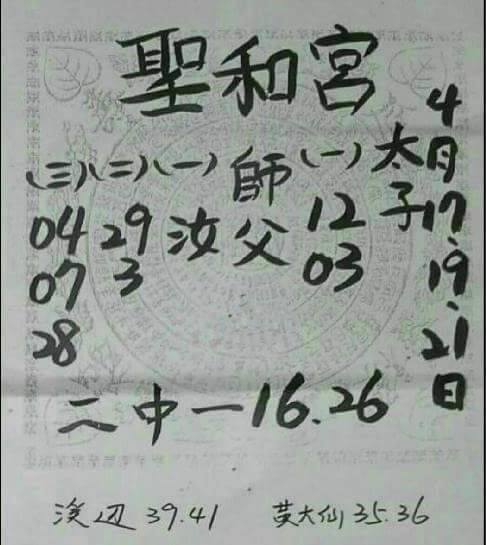 聖和宮
4月17、19、21日
太子
(一)
12
03
師父
(一)
汝
(二)
29
3
(三)
04
07
28
二中一16.26
渓辺 39.41
黄大仙 35.36